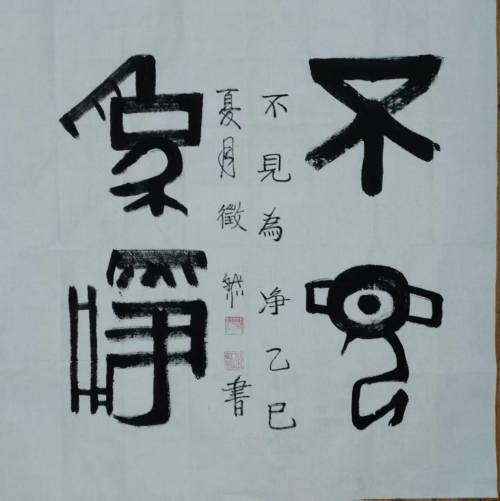 不見
不見為净乙巳
夏月徵然書
為净